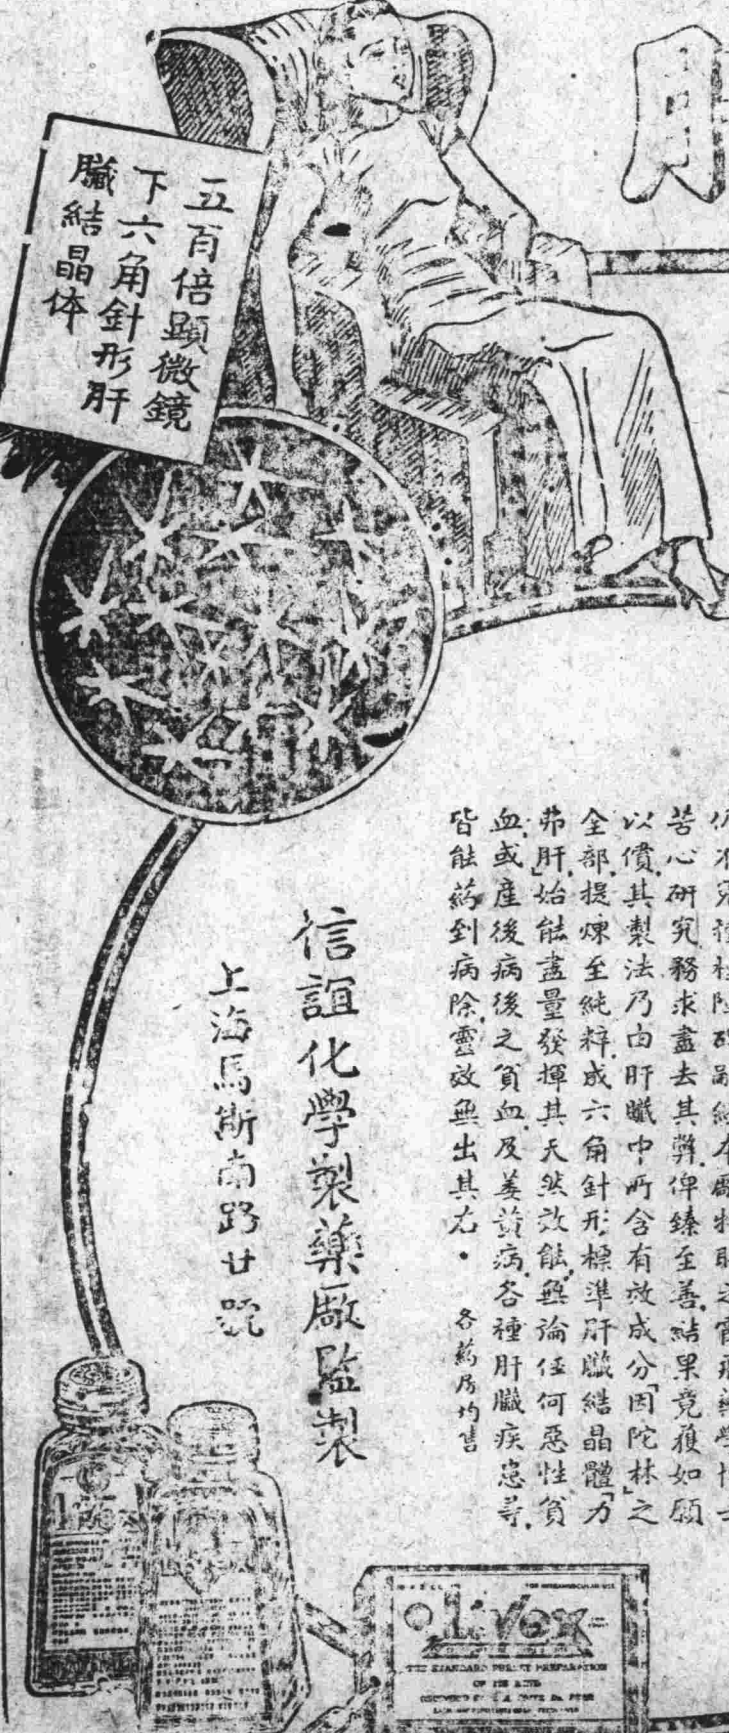 肝
五百倍顕微鏡
下六角針形肝
臟結晶体
苦心研究務求盡去其弊俾臻至善結果竟獲如願
以償其製法乃由肝臟中所含有效成分「因陀林」之
全部提煉至純粹成六角針形標準肝臟結晶體「力
弗肝」始能盡量發揮其天然效能無論任何惡性貧
血或產後病後之貧血及萎黃病各種肝臟疾患等
皆能藥到病除靈效無出其右・
各藥房均售
信誼化學製藥廠監製
上海馬斯南路廿號
Livox
Livox
THE STANDARD
PREPARATION
OF ITS KIND